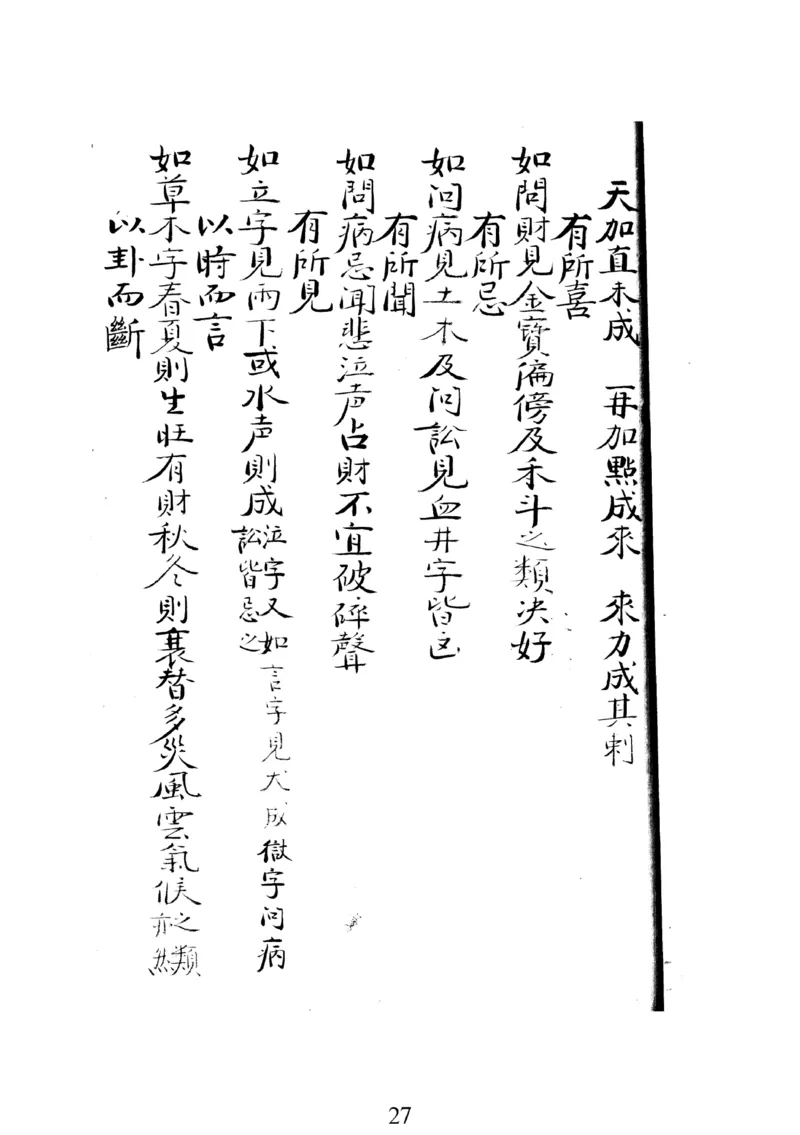 天加直未成　再加點成來　來力成其剌
有所喜
如問財見金寶偏傍及禾斗之類決好
有所忌
如问病見土木及问訟見血井字皆凶
有所聞
如問病忌闻悲泣声占財不宜破碎聲
有所見
如立字見雨下或水声則成泣字又如言字見犬成獄字问病訟皆忌之
以時而言
如草木字春夏則生旺有財秋冬則衰替多災風雲氣候之類亦然
以卦而斷
27